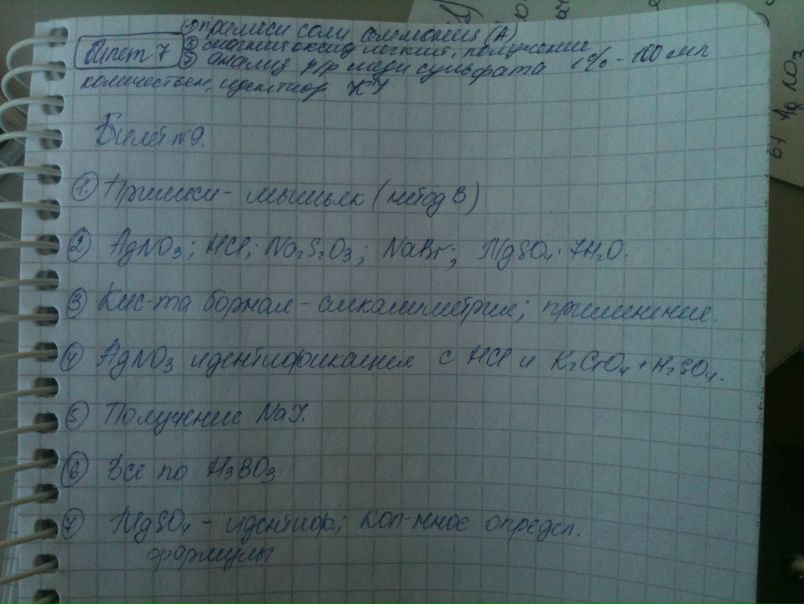 Билет 7
① примеси соли аммония (А)
② магния оксид легкий, получение
③ анализ р/р меди сульфата 1% - 100 мл
количествен, идентиф КУ
Билет №9.
① Примеси - мышьяк (метод В)
② AgNO3; HCl; Na2S2O3; NaBr; MgSO4 · 7H2O.
③ Кис-та борная - алкалиметрия; применение.
④ AgNO3 идентификация с HCl и K2CrO4 + H2SO4.
⑤ Получение NaY.
⑥ Все по H3BO3
⑦ MgSO4 - идентиф.; кол-нное определ.
формулы
б) AgNO3